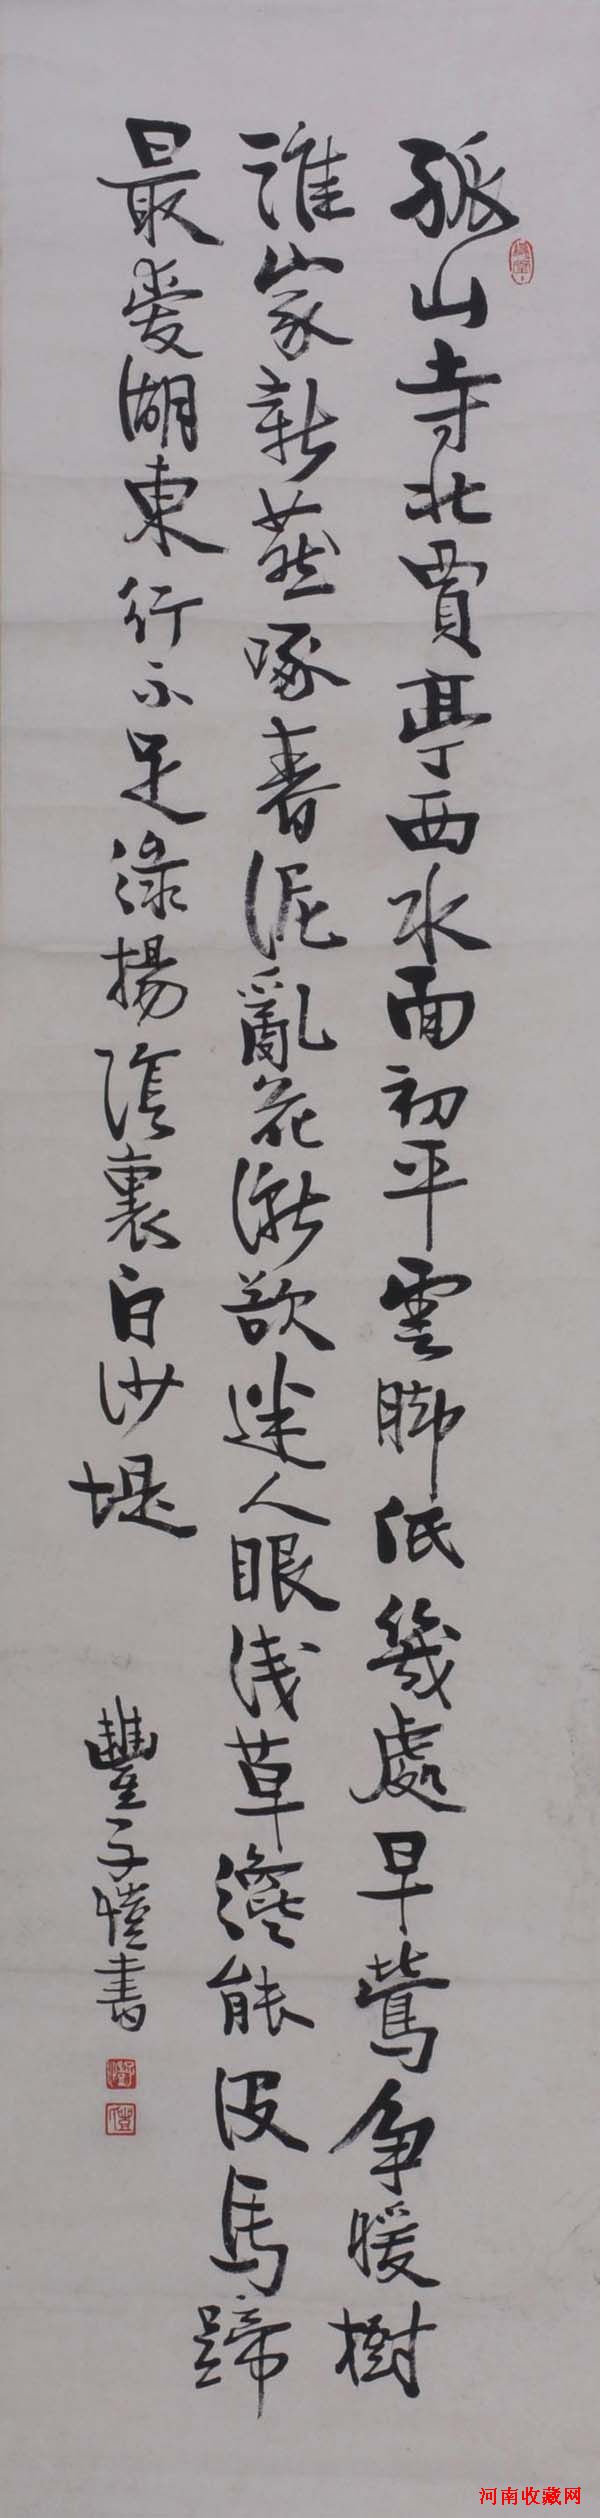 孤山寺北賈亭西水面初平雲脚低幾處早鶯争暖樹
誰家新燕啄春泥亂花漸欲迷人眼浅草纔能没馬蹄
最愛湖東行不足渌揚陰裏白沙堤
豐子愷書
河南收藏网